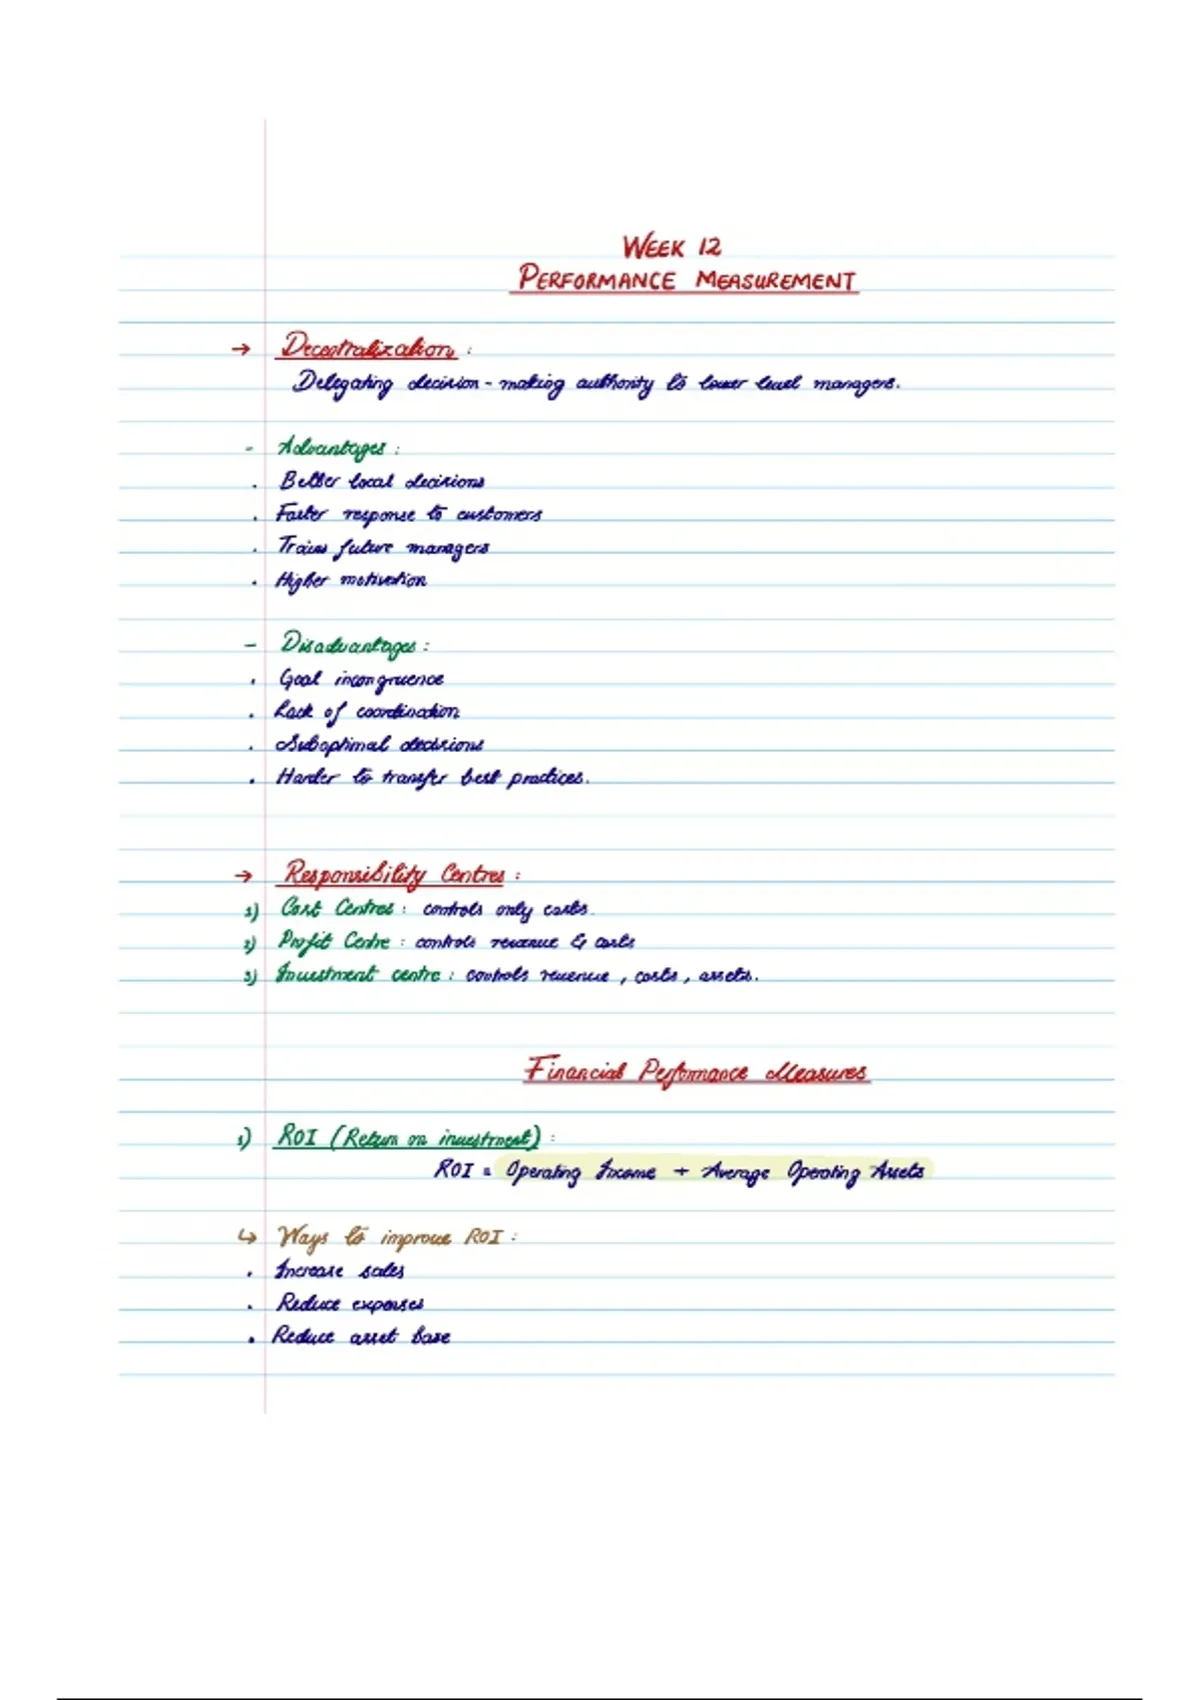 WEEK 12
PERFORMANCE MEASUREMENT
→ Decentralization :
Delegating decision-making authority to lower level managers.
- Advantages :
. Better local decisions
. Faster response to customers
. Trains future managers
. Higher motivation
- Disadvantages :
. Goal incongruence
. Lack of coordination
. Suboptimal decisions
. Harder to transfer best practices.
→ Responsibility Centres :
1) Cost Centres : controls only costs.
2) Profit Centre : controls revenue & costs
3) Investment centre : controls revenue, costs, assets.
Financial Performance Measures
1) ROI (Return on investment) :
ROI = Operating Income ÷ Average Operating Assets
↳ Ways to improve ROI :
. Increase sales
. Reduce expenses
. Reduce asset base